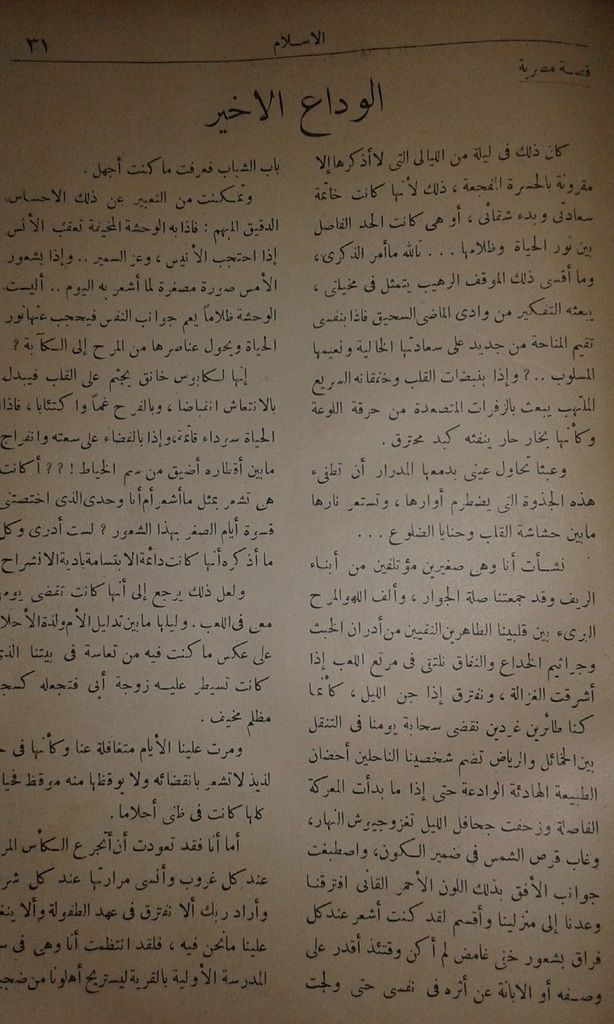 الاسلام
٣١
قصة مصرية
الوداع الاخير
كان ذلك فى ليلة من الليالى التى لا أذكرها إلا
مقرونة بالحسرة المفجعة ، ذلك لأنها كانت خاتمة
سعادتى وبدء شقائى ، أو هى كانت الحد الفاصل
بين نور الحياة وظلامها ... تالله ما أمر الذكرى،
وما أقسى ذلك الموقف الرهيب يتمثل فى مخيلتى ،
يبعثه التفكير من وادى الماضى السحيق فاذا بنفسى
تقيم المناحة من جديد على سعادتها الخالية ونعيمها
المسلوب ..؟ وإذا بنبضات القلب وخفقانه السريع
الملتهب يبعث بالزفرات المتصعدة من حرقة اللوعة
وكأنها بخار حار ينفثه كبد محترق .
وعبثا تحاول عينى بدمعها المدرار أن تطفىء
هذه الجذوة التى يضطرم أوارها ، وتستعر نارها
ما بين حشاشة القلب وحنايا الضلوع ...
نشأت أنا وهى صغيرين مؤتلفين من أبناء
الريف وقد جمعتنا صلة الجوار ، وألف اللهو والمرح
البرىء بين قلبينا الطاهرين النقيين من أدران الخبث
وجراثيم الخداع والنفاق نلتقى فى مرتع اللعب إذا
أشرقت الغزالة ، ونفترق إذا جن الليل ، كأنما
كنا طائرين غردين نقضى سحابة يومنا فى التنقل
بين الخمائل والرياض تضم شخصينا الناحلين أحضان
الطبيعة الهادئة الوادعة حتى إذا ما بدأت المعركة
الفاصلة وزحفت جحافل الليل تغزو جيوش النهار،
وغاب قرص الشمس فى ضمير الكون، واصطبغت
جوانب الأفق بذلك اللون الأحمر القانى افترقنا
وعدنا إلى منزلينا وأقسم لقد كنت أشعر عند كل
فراق بشعور خفى غامض لم أكن وقتئذ أقدر على
وصفه أو الابانة عن أثره فى نفسى حتى ولجت
باب الشباب فعرفت ما كنت أجهل .
وتمكنت من التعبير عن ذلك الاحساس
الدقيق المبهم : فاذا به الوحشة المخيفة تعقب الأنس
إذا احتجب الأنيس ، وعز السمير .. وإذا بشعور
الأمس صورة مصغرة لما أشعر به اليوم .. أليست
الوحشة ظلاماً يعم جوانب النفس فيحجب عنها نور
الحياة ويحول عناصرها من المرح إلى الكآبة ؟
إنها لكابوس خانق يجثم على القلب فيبدل
بالانتعاش انقباضا ، وبالفرح غماً واكتئابا ، فاذا
الحياة سوداء قاتمة، وإذا بالفضاء على سعته وانفراج
ما بين أقطاره أضيق من سم الخياط ! ؟؟ أكانت
هى تشعر بمثل ما أشعر أم أنا وحدى الذى اختصتنى
قسوة أيام الصغر بهذا الشعور ؟ لست أدرى وكل
ما أذكره أنها كانت دائمة الابتسامة بادية الانشراح
ولعل ذلك يرجع إلى أنها كانت تقضى
معى فى اللعب . وليلها ما بين تدليل الأم ولذة
على عكس ما كنت فيه من تعاسة فى بيتنا
كانت تسيطر عليه زوجة أبى فتجعله
مظلم مخيف .
ومرت علينا الأيام متغافلة عنا وكأنها فى
لذيذ لا تشعر بانقضائه ولا يوقظها منه موقظ
كلها كانت فى ظنى أحلاما .
أما أنا فقد تعودت أن أتجرع الكأس
عند كل غروب وأنسى مرارتها عند كل
وأراد ربك ألا نفترق فى عهد الطفولة وألا
علينا ما نحن فيه ، فلقد انتظمت أنا وهى فى
المدرسة الأولية بالقرية ليستريح أهلونا من